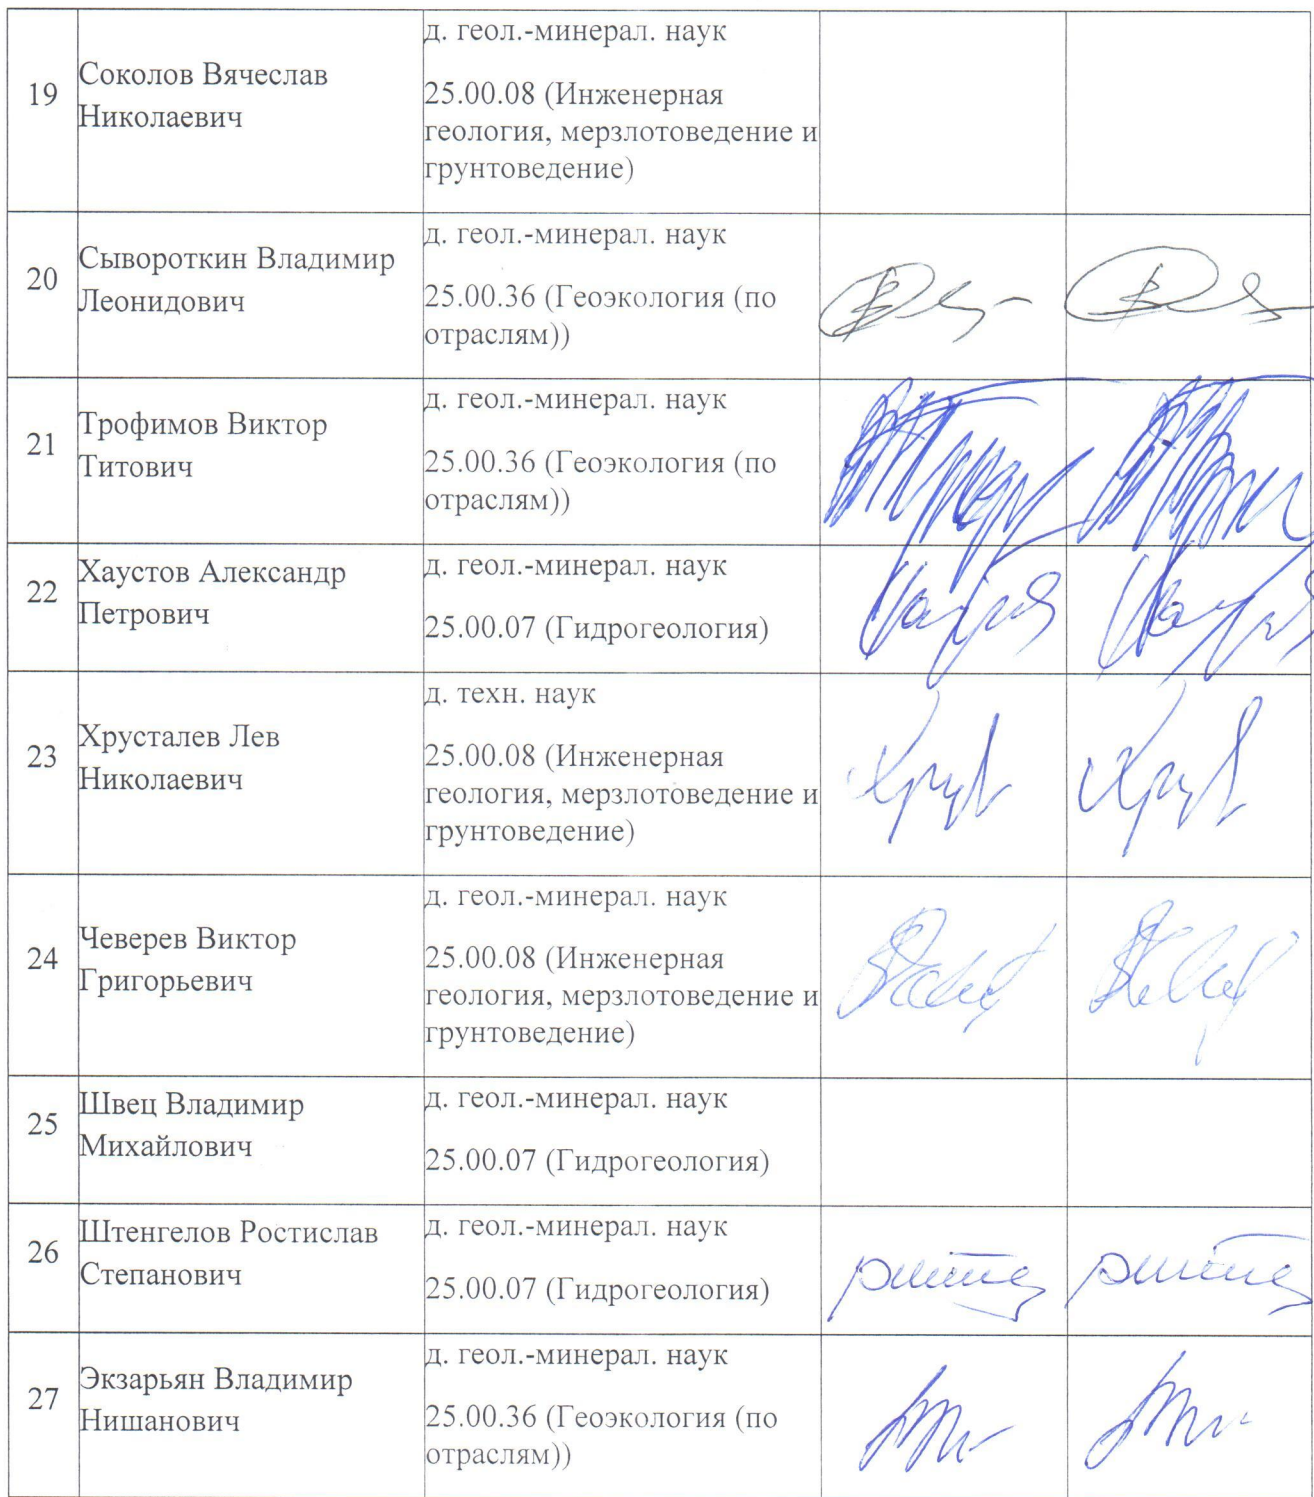 19
Соколов Вячеслав
Николаевич
д. геол.-минерал. наук
25.00.08 (Инженерная
геология, мерзлотоведение и
грунтоведение)
20
Сывороткин Владимир
Леонидович
д. геол.-минерал. наук
25.00.36 (Геоэкология (по
отраслям))
21
Трофимов Виктор
Титович
д. геол.-минерал. наук
25.00.36 (Геоэкология (по
отраслям))
22
Хаустов Александр
Петрович
д. геол.-минерал. наук
25.00.07 (Гидрогеология)
23
Хрусталев Лев
Николаевич
д. техн. наук
25.00.08 (Инженерная
геология, мерзлотоведение и
грунтоведение)
24
Чеверев Виктор
Григорьевич
д. геол.-минерал. наук
25.00.08 (Инженерная
геология, мерзлотоведение и
грунтоведение)
25
Швец Владимир
Михайлович
д. геол.-минерал. наук
25.00.07 (Гидрогеология)
26
Штенгелов Ростислав
Степанович
д. геол.-минерал. наук
25.00.07 (Гидрогеология)
27
Экзарьян Владимир
Нишанович
д. геол.-минерал. наук
25.00.36 (Геоэкология (по
отраслям))